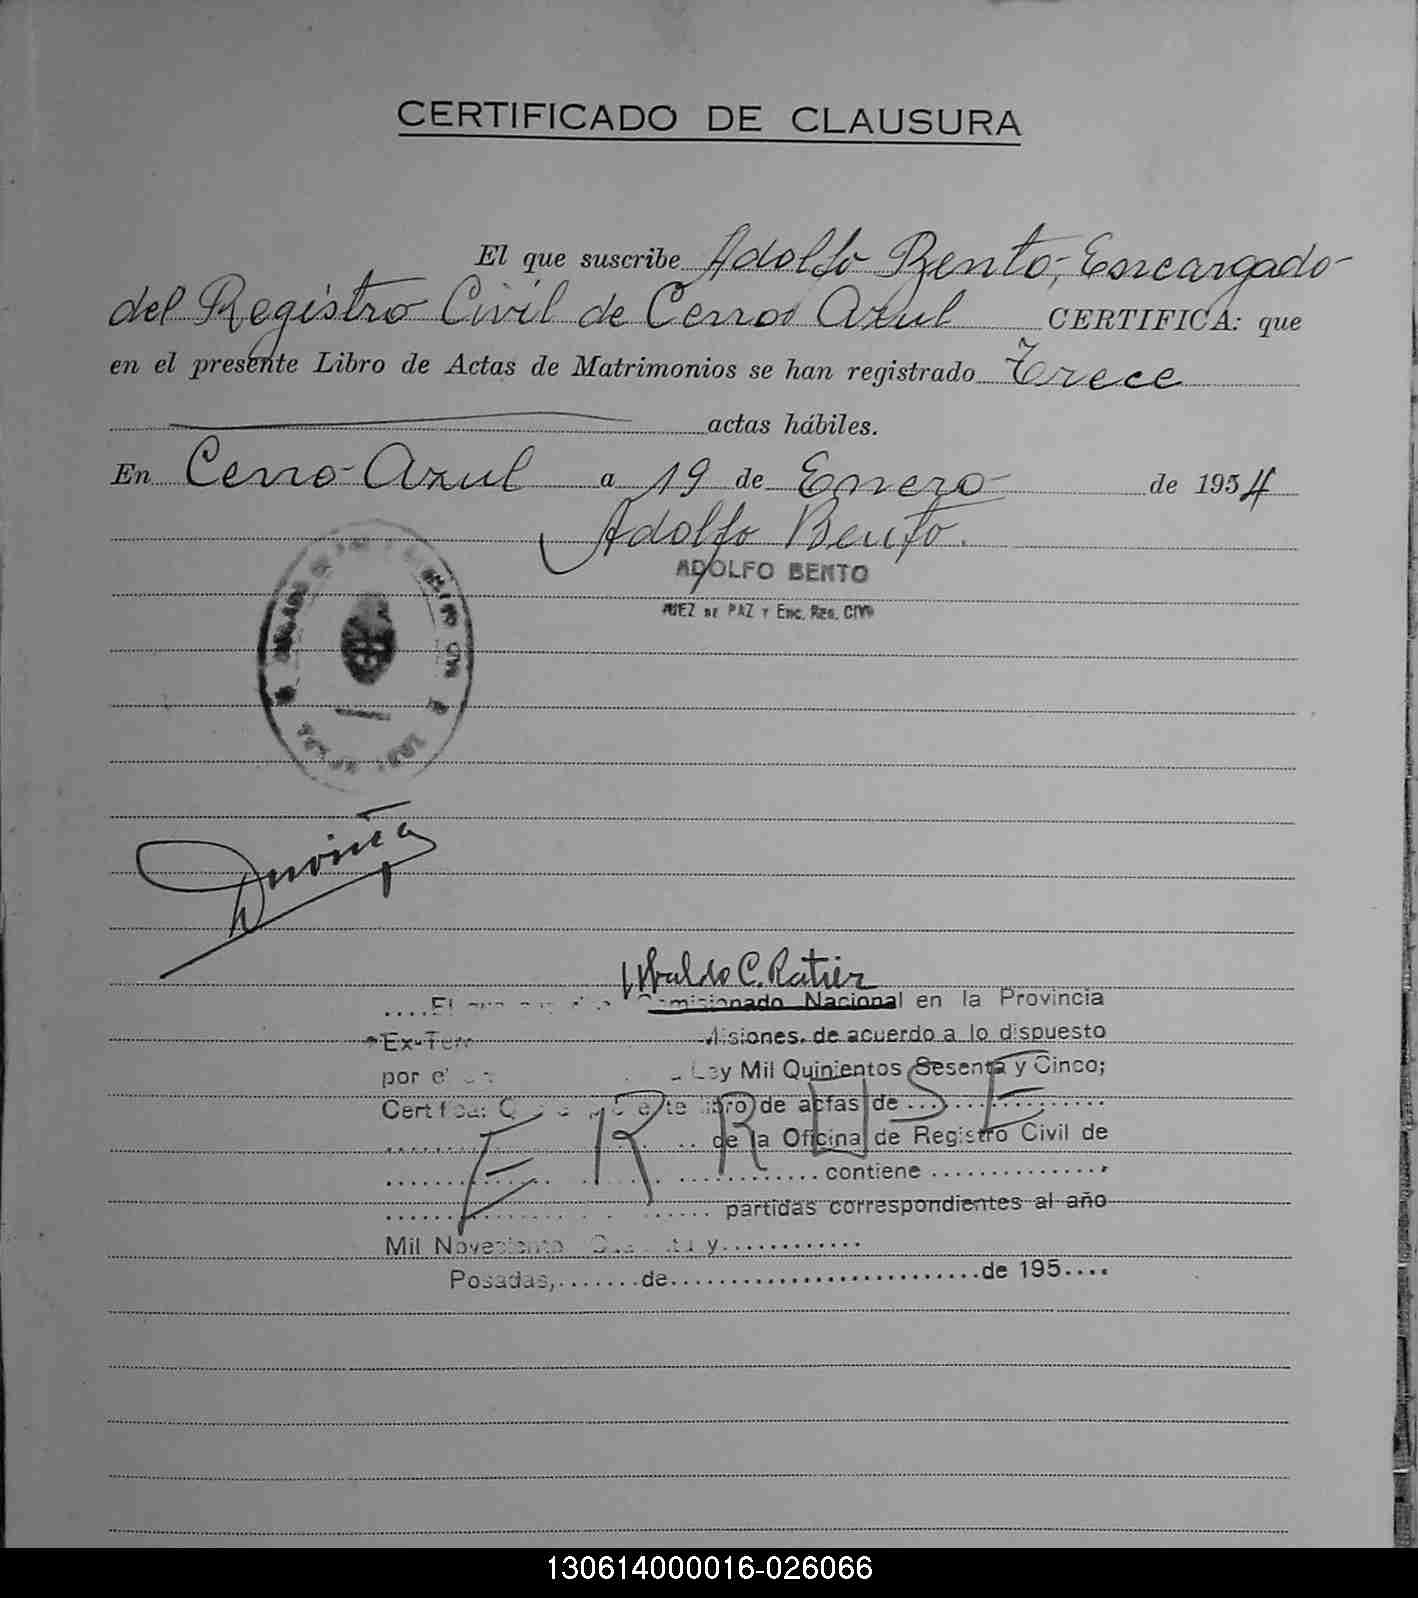 CERTIFICADO DE CLAUSURA
El que suscribe Adolfo Bento, Encargado
del Registro Civil de Cerro Azul CERTIFICA: que
en el presente Libro de Actas de Matrimonios se han registrado Trece
actas hábiles.
En Cerro Azul a 19 de Enero de 1954
Adolfo Bento.
ADOLFO BENTO
JUEZ DE PAZ Y Enc. Reg. CIVIL
Ubaldo C. Ratier
....El Comisionado Nacional en la Provincia
Ex-Terr Misiones, de acuerdo a lo dispuesto
por el Ley Mil Quinientos Sesenta y Cinco;
Certifica: libro de actas de ...............
de la Oficina de Registro Civil de
contiene ................
partidas correspondientes al año
Mil Noveciento y............
Posadas,.......de..........................de 195....
ERROSE
130614000016-026066